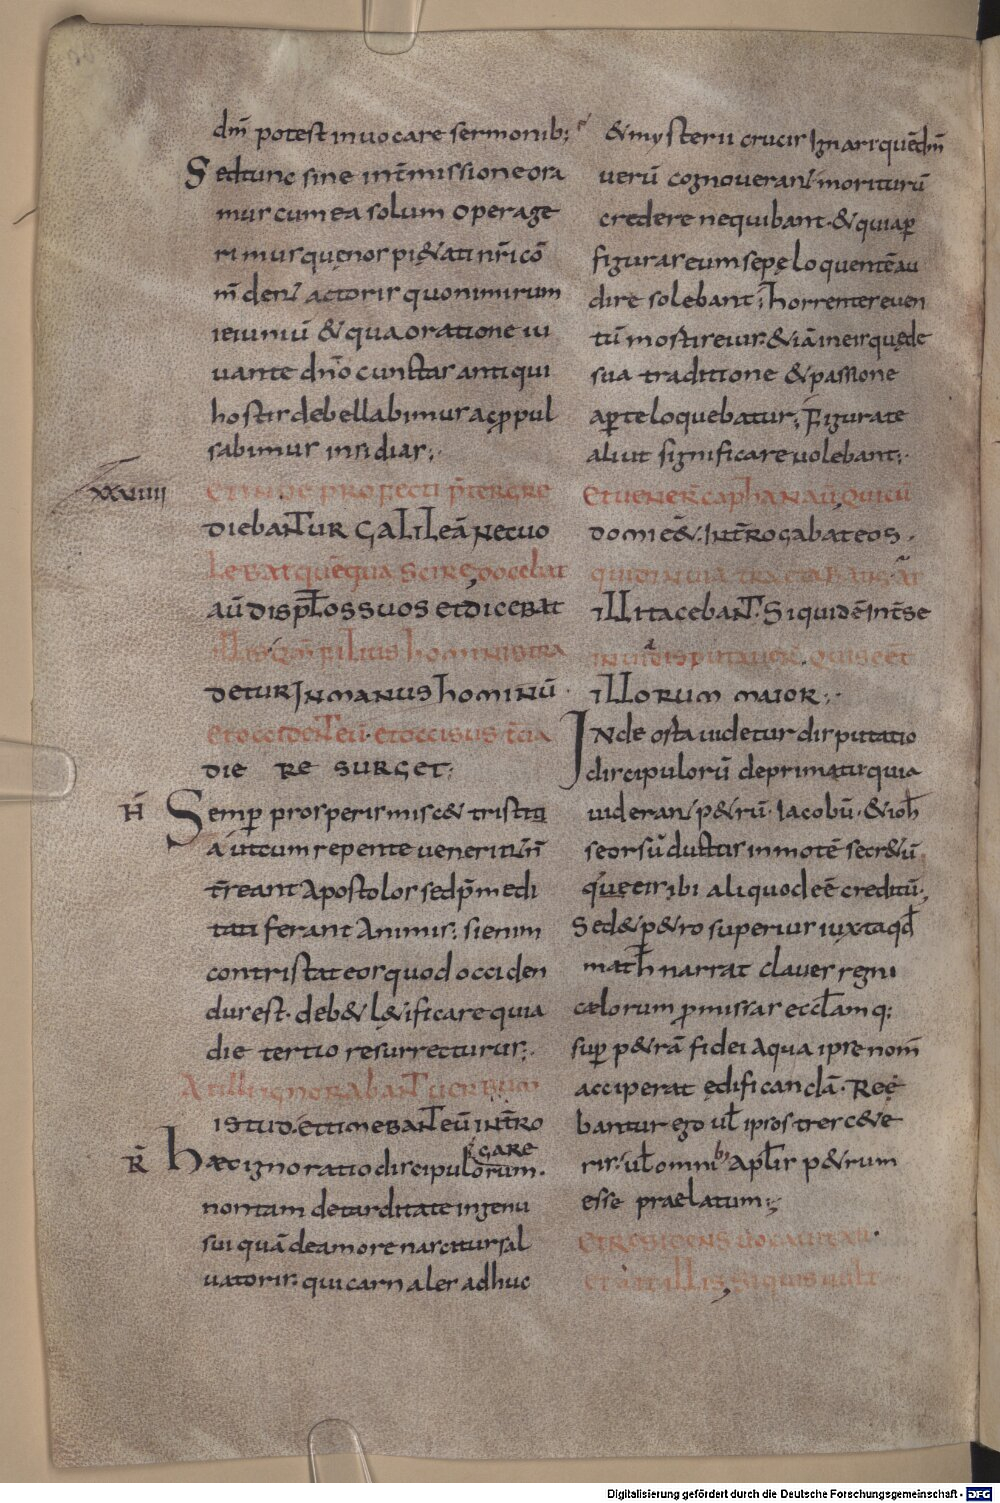 dm̄ potest inuocare sermonib;
Sedtunc sine int̄missione ora
mur cum ea solum operage
rimus quę nos pi&ati nr̄i cō
m̄dent actoris quonimirum
ieiuniū & qua oratione iu
uante dn̄o cunctas antiqui
hostis debellabimus ac ꝓpul
sabimus insidias;
XXXVIIII
Et inde profecti p̄tergre
diebantur galileā nec uo
lebat quēquā scire docebat
aū discipl̄os suos et dicebat
illis qm̄ filius hominis tra
detur in manus hominū
et occident eū. et occisus t̄cia
die resurget;
H̄
Semp̄ prosperis misc& tristia
a ut cum repente uenerint n̄
t̄reant apostolos sed p̄medi
tati ferant animis; si enim
contristat eos quod occiden
dus est. deb& l&ificare quia
die tertio resurrecturus;
At illi ignorabant uerbum
istud. et timebant eū int̄ro
gare
R̄
Haec ignoratio discipulorum.
non tam de tarditate ingenii
sui quā de amore nascitur sal
uatoris. qui carnales adhuc
& mysterii crucis ignari quē dm̄
uerū cognouerant moriturū
credere nequibant. & quia p̄
figuras eum sepę loquentē au
dire solebant; horrentes euen
tū mostis eius. & iā in eis quę de
sua traditione & passione
ap̄te loquebatur; Figurate
aliut significare uolebant;
Et uener̄ caphanaū. qui cū
domi eēt. int̄rogabat eos.
quid in uia tractabatis. at
illi tacebant. Siquidē int̄ se
in uia disputauer̄. quis eēt
illorum maior;
Inde orta uidetur disputatio
discipulorū de primatu quia
uiderant p&rū. Iacobū. & ioh̄
seorsū ductus in montē secr&iū
quę eis ibi aliquod eē creditū;
Sed & p&ro superius iuxta qd̄
math̄ narrat claues regni
cælorum p̄missas eccl̄amq;
sup̄ p&rā fidei a qua ipse nom̄
acciperat ędificandā. Ree
bantur ergo ul̄ ipsos tres c&e
ris. ul̄ omnib; apl̄is p&rum
esse praelatum;
Et residens uocauit xii.
et ait illis; si quis uult
Digitalisierung gefördert durch die Deutsche Forschungsgemeinschaft - DFG